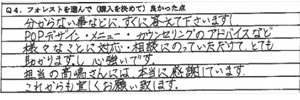 Q4. フォレストを選んで（購入を決めて）良かった点
分からない事などに、すぐに答えて下さいます！
POPデザイン・メニュー・カウンセリングのアドバイスなど
様々なことに対応・相談にのっていただけて、とても
助かりますし心強いです。
担当の高嶋さんには、本当に感謝しています。
これからも宜しくお願い致します。